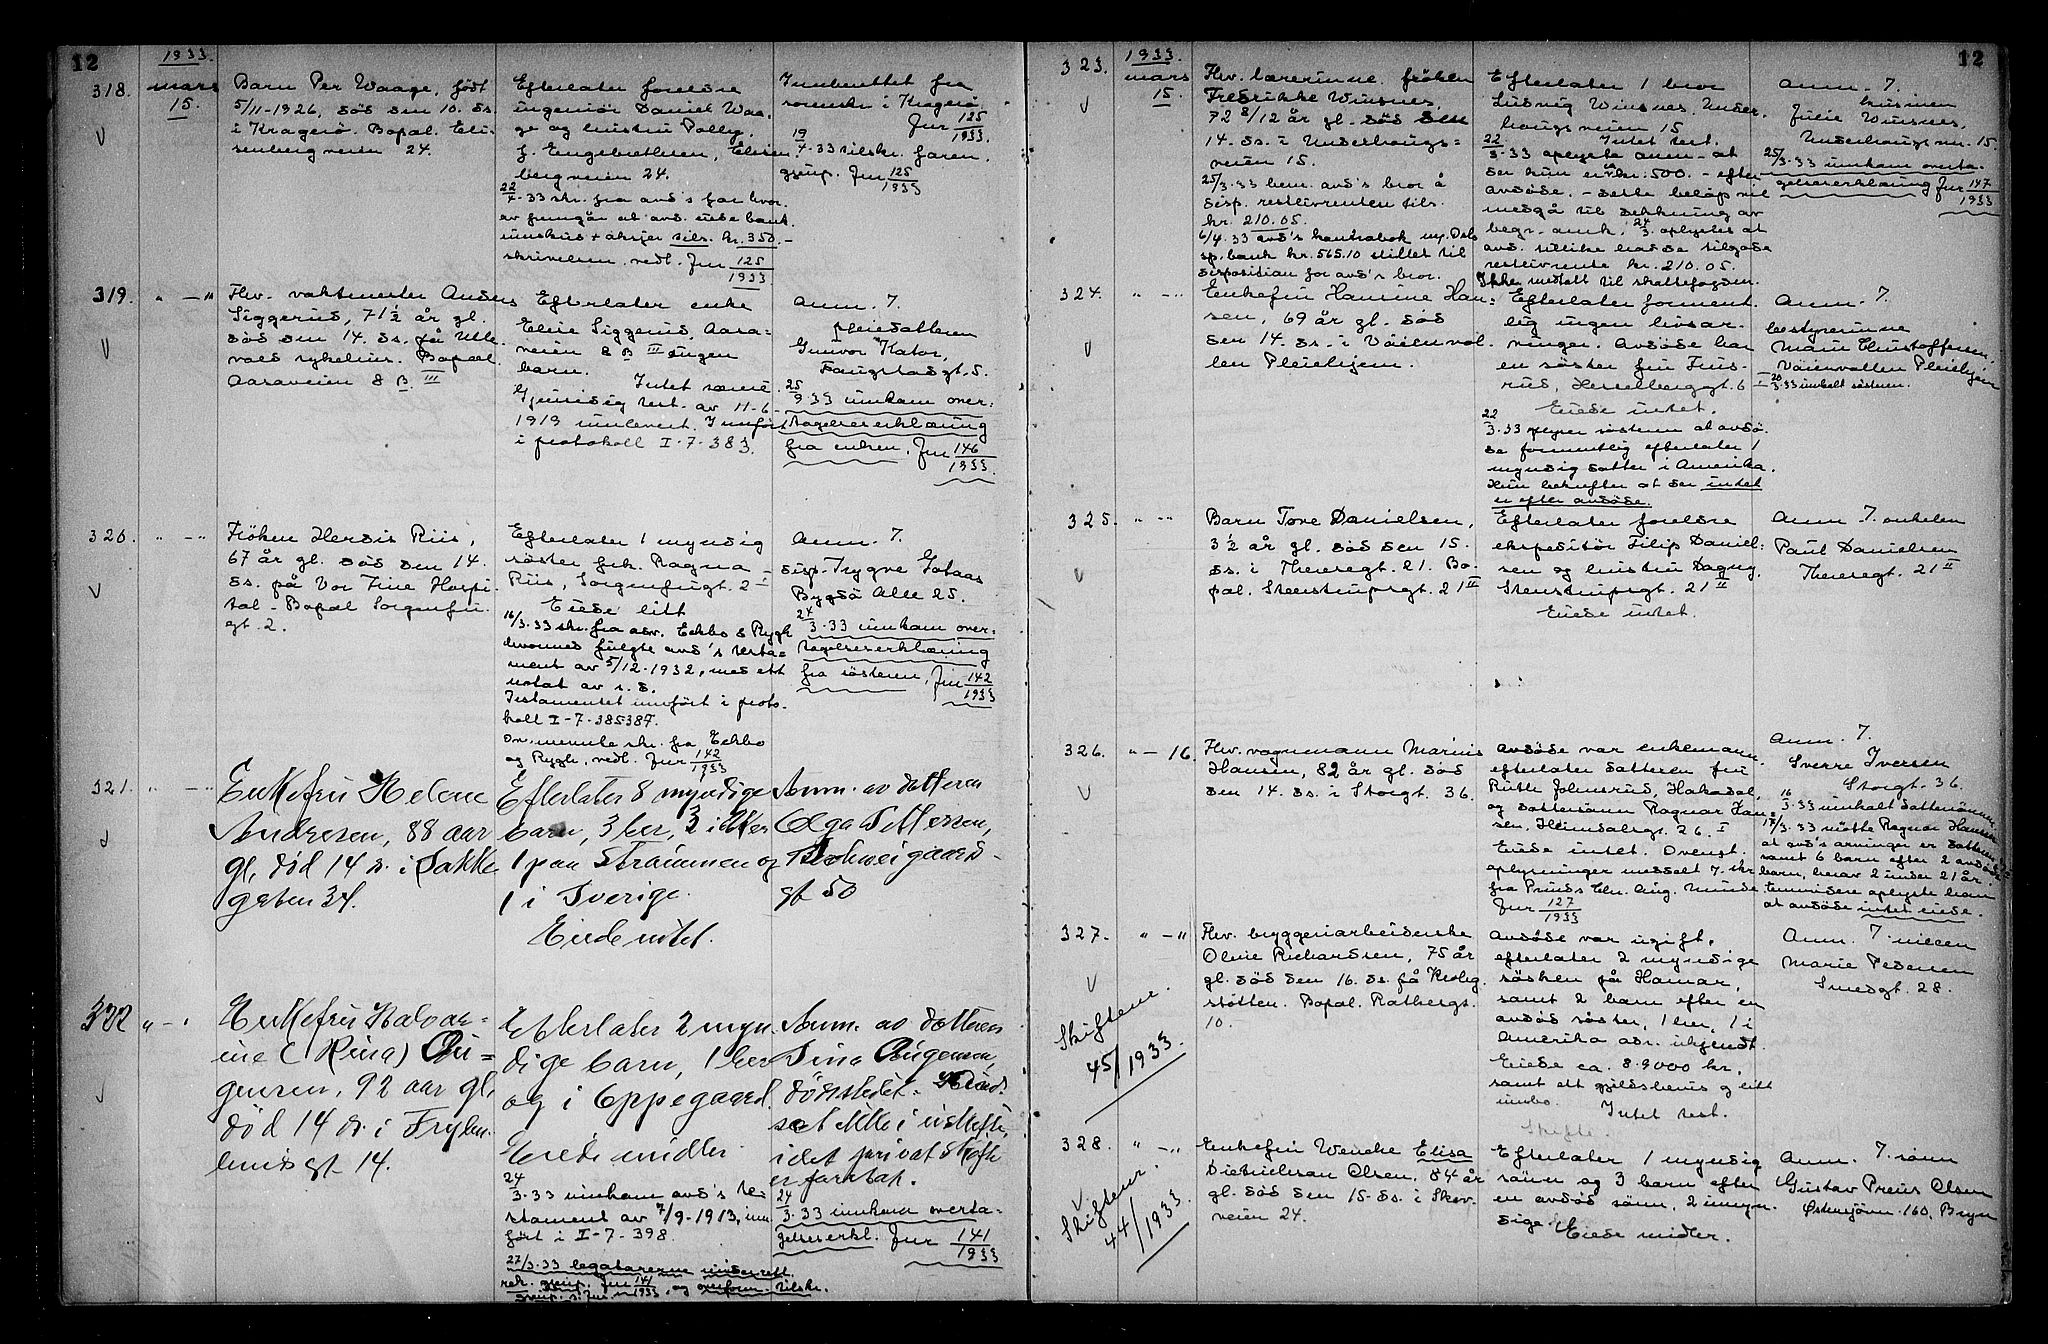 12
1933
318.
mars
15.
Barn Per Waage, født
5/11-1926, död den 10. ds.
i Kragerö. Bopæl. Eli-
senbergveien 24.
Efterlater foreldre
ingeniör Daniel Waa-
ge og hustru Polly,
f. Engebrethsen, Elisen-
bergveien 24.
22/4-33 skr. fra avd's far hvor-
av fremgår at avd. eiede bank-
innskud + aksjer tils. kr. 350.-
skrivelsen vedl. Jnr 125/1933
Innberettet fra
lensm. i Kragerö.
Jnr 125/1933
19/4-33 tilskr. faren.
Jnr 125/1933
319.
" — "
Fhv. vaktmester Anders
Siggerud, 71½ år gl.
död den 14. ds. på Ulle-
vaal sykehus. Bopæl
Aaraveien 8 B III
Efterlater enke
Elise Siggerud, Aara-
veien 8 B III ingen
barn.
Intet særeie
Gjensidig test. av 11-6-
1919 innlevert. Innfört
i protokoll I-7-383.
Anm. 7.
pleiedatteren
Gunvor Kator,
Faugstadgt. 5.
25/3 33 innkom over-
tagelseserklæring
fra enken. Jnr 146/1933
320.
" — "
Fröken Herdis Riis,
67 år gl. död den 14.
ds. på Vor Frue Hospi-
tal - Bopæl Sorgenfri-
gt. 2.
Efterlater 1 myndig
söster frk. Ragna
Riis, Sorgenfrigt. 2 I
Eiede litt
16/3.33 skr. fra adv. Eckbo & Rygh
hvormed fulgte avd's testa-
ment av 5/12-1932, med ett
notat av s. d.
Testamentet innfört i proto-
koll I-7-385387.
Omnevnte skr. fra Eckbo
og Rygh, vedl. Jnr 142/1933
Anm. 7.
disp. Trygve Gotaas
Bygdö Alle 25.
24/3.33 innkom over-
tagelseserklæring
fra sösteren, Jnr 142/1933
321.
" — "
Enkefru Helene
Andresen, 88 aar
gl, död 14 ds. i Bakke-
gaten 34.
Efterlater 8 myndige
barn, 3 her, 3 i Amer
1 paa Strømmen og
1 i Sverige.
Eiede intet.
Anm. av datteren
Olga Pettersen,
Schweigaards-
gt 50
322
" — "
Enkefru Halvar-
ine (Rina) Jør-
gensen, 92 aar gl,
död 14 ds. i Fryden-
lunds gt 14.
Efterlater 2 myn-
dige barn, 1 her
og i Oppegaard.
Eiede midler
24/3.33 innkom avd's te-
stament av 7/9-1913, inn-
fört i I-7-398.
27/3.33 legatarerne underrett.
Anm. av datteren
Sina Jørgensen,
dødsstedet.
sat ikke i uskifte,
idet privat skifte
er foretat.
24/3.33 innkom overta-
gelseserkl. Jnr 141/1933
12
1933.
323.
mars
15
Fhv. lærerinne fröken
Fredrikke Winsnes,
72 8/12 år gl. död den
14. ds. i Underhaugs-
veien 15.
25/3.33 bem. avd's bror å
disp. restlivrenten tils.
kr. 210.05.
6/4.33 avd's kontrabok m. Oslo
sp. bank kr. 565.10 stillet til
disposition for avd's bror.
Efterlater 1 bror
Ludvig Winsnes, Under-
haugsveien 15.
Intet test.
22/3.33 oplyste anm. at
der kun er kr: 500. - efter
avdöde. - dette belöp vil
medgå til dekning av
begr. omk. 24/3 oplystes at
avd. tillike hadde tilgode
restlivrente kr. 210.05.
Ikke meddelt til skattefogden.
Anm. 7.
kusinen
Julie Winsnes,
Underhaugsvn. 15
25/3.33 innkom overta-
gelseserklæring Jnr 147/1933
324.
" — "
Enkefru Hansine Han-
sen, 69 år gl. död
den 14. ds. i Vaienvol-
len Pleiehjem.
Efterlater forment-
lig ingen livsar-
vinger. Avdöde har
en söster fru Fus-
rud, Herslebsgt. 6
Eiede intet.
22/3.33 oplyser sösteren at avdö-
de formentlig efterlater 1
myndig datter i Amerika.
Hun bekrefter at der intet
er efter avdöde.
Anm. 7.
bestyrerinne
Marie Christoffersen,
Vaienvollen Pleiehjem
20/3.33 innkalt sösteren.
325.
" — "
Barn Tove Danielsen,
3½ år gl. död den 15.
ds. i Theresegt. 21. Bo-
pæl. Stenstrupsgt. 21 II
Efterlater foreldre
ekspeditör Filip Daniel-
sen og hustru Dagny,
Stenstrupsgt. 21 II
Eiede intet.
Anm. 7. onkelen
Paul Danielsen
Theresegt. 21 II
326.
" — 16.
Fhv. vognmann Marius
Hansen, 82 år gl. död
den 14. ds. i Storgt. 36.
Avdöde var enkemann.
efterlater datteren fru
Ruth Johnsrud, Hakadal,
og dattersönn Ragnar Han-
sen, Heimdalsgt. 26. I
Eiede intet. Ovengt.
oplysninger meddelt 7. skr
fra Pruds Chr. Aug. Munde
Jnr 127/1933
Anm. 7.
Sverre Iversen
Storgt. 36.
16/3.33 innkalt dattersönnen
17/3.33 mötte Ragnar Hansen
at avd's arvinger er datteren
samt 6 barn efter 2 avdöde
barn, herav 2 under 21 år.
Emnidere oplyste han
at avdöde intet eiede.
327.
" — "
Fhv. bryggeriarbeiderske
Oline Richardsen, 75 år
gl. död den 16. ds. på Krohg-
stötten. Bopæl. Rathkesgt.
10.
Skiftene.
45/1933.
Avdöde var ugift,
efterlater 2 myndige
sösken på Hamar,
samt 2 barn efter en
avdöd söster, 1 her, 1 i
Amerika adr. ukjendt.
Eiede ca. 8.9000 kr,
samt ett gjeldsbevis og litt
innbo. Intet test.
Skifte.
Anm. 7. niecen
Marie Pedersen
Smedgt. 28.
328.
" — "
Skiftene.
44/1933
Enkefru Wencke Elisa
Dietrichson Olsen, 84 år
gl. död den 15. ds. i Skov-
veien 24.
Efterlater 1 myndig
sönn og 3 barn efter
en avdöd sönn, 2 umyn-
dige Eiede midler.
Anm. 7. sönn
Gustav Preus Olsen
Östensjövn. 160, Bryn